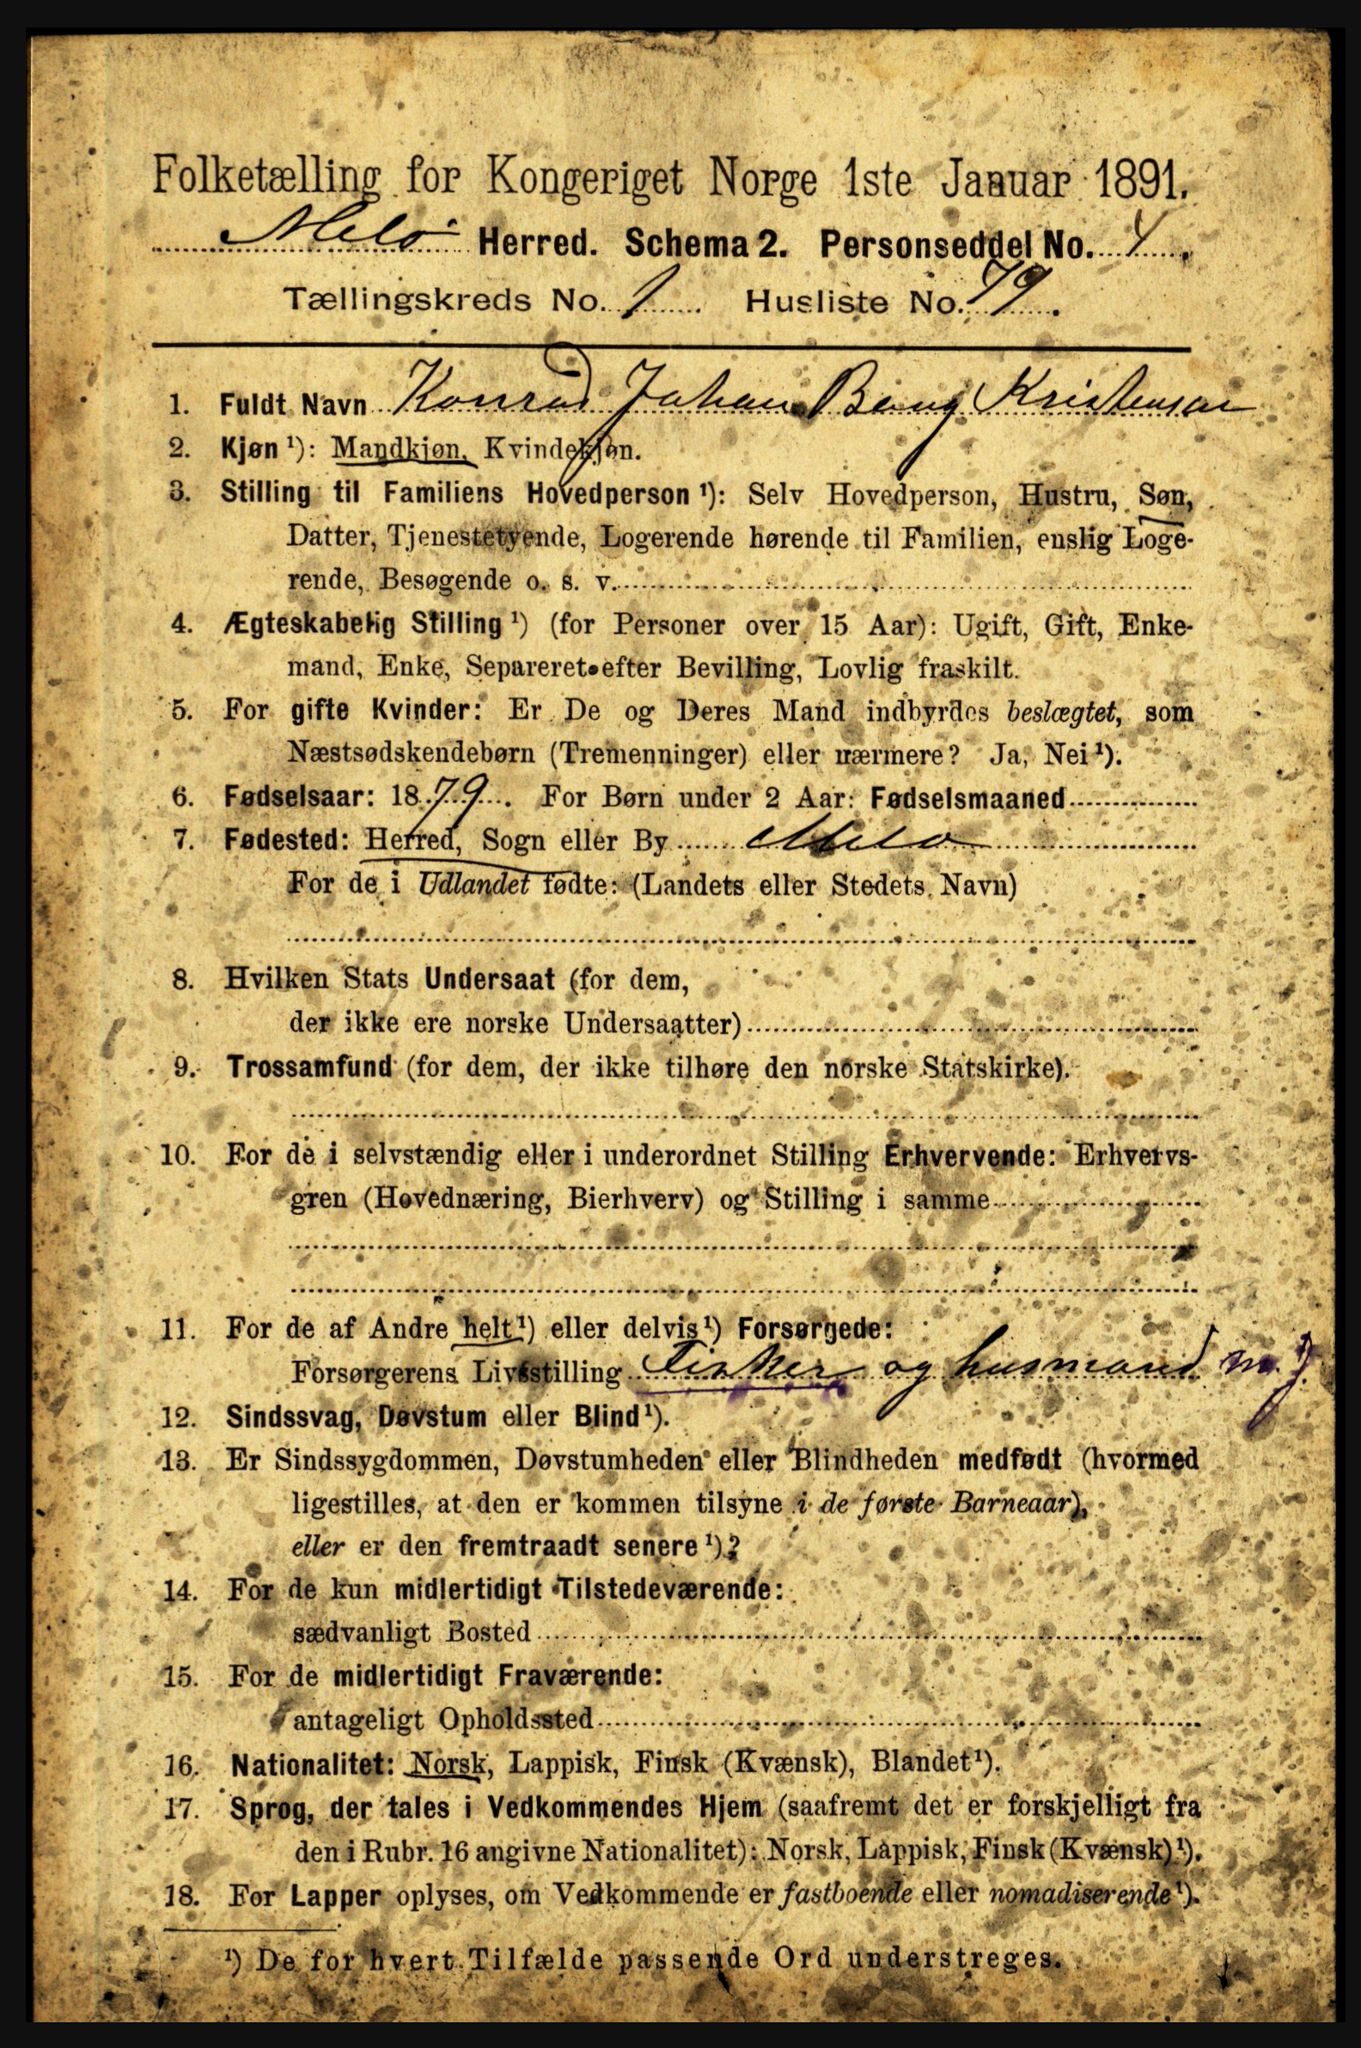 Folketælling for Kongeriget Norge 1ste Januar 1891.
Melö Herred. Schema 2. Personseddel No. 4.
Tællingskreds No. 1 Husliste No. 79.
1. Fuldt Navn Konrad Johan Bang Kristensen
2. Kjøn ¹): Mandkjøn, Kvindekjøn.
3. Stilling til Familiens Hovedperson ¹): Selv Hovedperson, Hustru, Søn,
Datter, Tjenestetyende, Logerende hørende til Familien, enslig Loge-
rende, Besøgende o. s. v.
4. Ægteskabelig Stilling ¹) (for Personer over 15 Aar): Ugift, Gift, Enke-
mand, Enke, Separeret efter Bevilling, Lovlig fraskilt.
5. For gifte Kvinder: Er De og Deres Mand indbyrdes beslægtet, som
Næstsødskendebørn (Tremenninger) eller nærmere? Ja, Nei ¹).
6. Fødselsaar: 1879. For Børn under 2 Aar: Fødselsmaaned
7. Fødested: Herred, Sogn eller By Melö
For de i Udlandet fødte: (Landets eller Stedets Navn)
8. Hvilken Stats Undersaat (for dem,
der ikke ere norske Undersaatter)
9. Trossamfund (for dem, der ikke tilhøre den norske Statskirke).
10. For de i selvstændig eller i underordnet Stilling Erhvervende: Erhvervs-
gren (Hovednæring, Bierhverv) og Stilling i samme
11. For de af Andre helt ¹) eller delvis ¹) Forsørgede:
Forsørgerens Livsstilling Fisker og husmand m. j.
12. Sindssvag, Døvstum eller Blind ¹).
13. Er Sindssygdommen, Døvstumheden eller Blindheden medfødt (hvormed
ligestilles, at den er kommen tilsyne i de første Barneaar),
eller er den fremtraadt senere ¹)?
14. For de kun midlertidigt Tilstedeværende:
sædvanligt Bosted
15. For de midlertidigt Fraværende:
antageligt Opholdssted
16. Nationalitet: Norsk, Lappisk, Finsk (Kvænsk), Blandet ¹).
17. Sprog, der tales i Vedkommendes Hjem (saafremt det er forskjelligt fra
den i Rubr. 16 angivne Nationalitet): Norsk, Lappisk, Finsk (Kvænsk) ¹).
18. For Lapper oplyses, om Vedkommende er fastboende eller nomadiserende ¹).
¹) De for hvert Tilfælde passende Ord understreges.